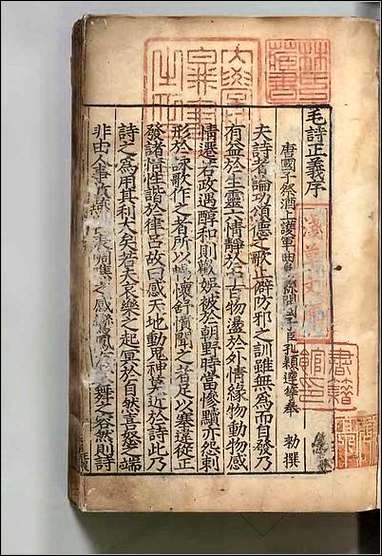 毛詩正義序
唐國子祭酒上護軍曲阜縣開國子臣孔穎達等奉 勑撰
夫詩者論功頌德之歌止僻防邪之訓雖無為而自發乃
有益於生靈六情靜於中百物盪於外情緣物動物感
情遷若政遇醇和則歡娛被於朝野時當慘黷亦怨刺
形於詠歌作之者所以暢懷舒憤聞之者足以塞違從正
發諸情性諧於律呂故曰感天地動鬼神莫近於詩此乃
詩之為用其利大矣若夫哀樂之起冥於自然喜怒之端
非由人事故燕雀表啁噍之感鸞鳳有歌舞之容然則詩
林氏藏書
淺草文庫
書籍館印